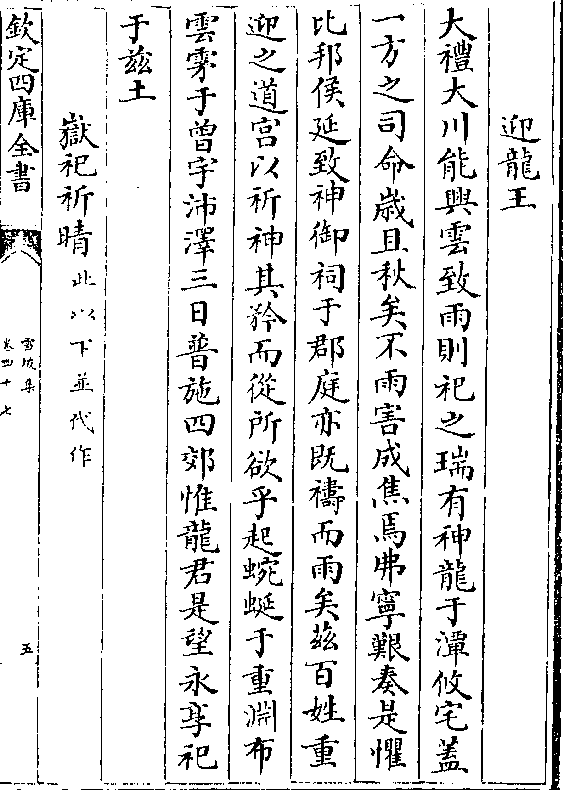 迎龍王
大禮大川能興雲致雨則祀之瑞有神龍于潭攸宅蓋
一方之司命歲且秋矣不雨害成焦焉弗寧艱奏是懼
比邦侯延致神御祠于郡庭亦既禱而雨矣兹百姓重
迎之道宫以祈神其矜而從所欲乎起蜿蜒于重淵布
雲霧于曾宇沛澤三日普施四郊惟龍君是望永享祀
于兹土
嶽祀祈晴此以下並代作
欽定四庫全書
雪坡集
卷四十七
五